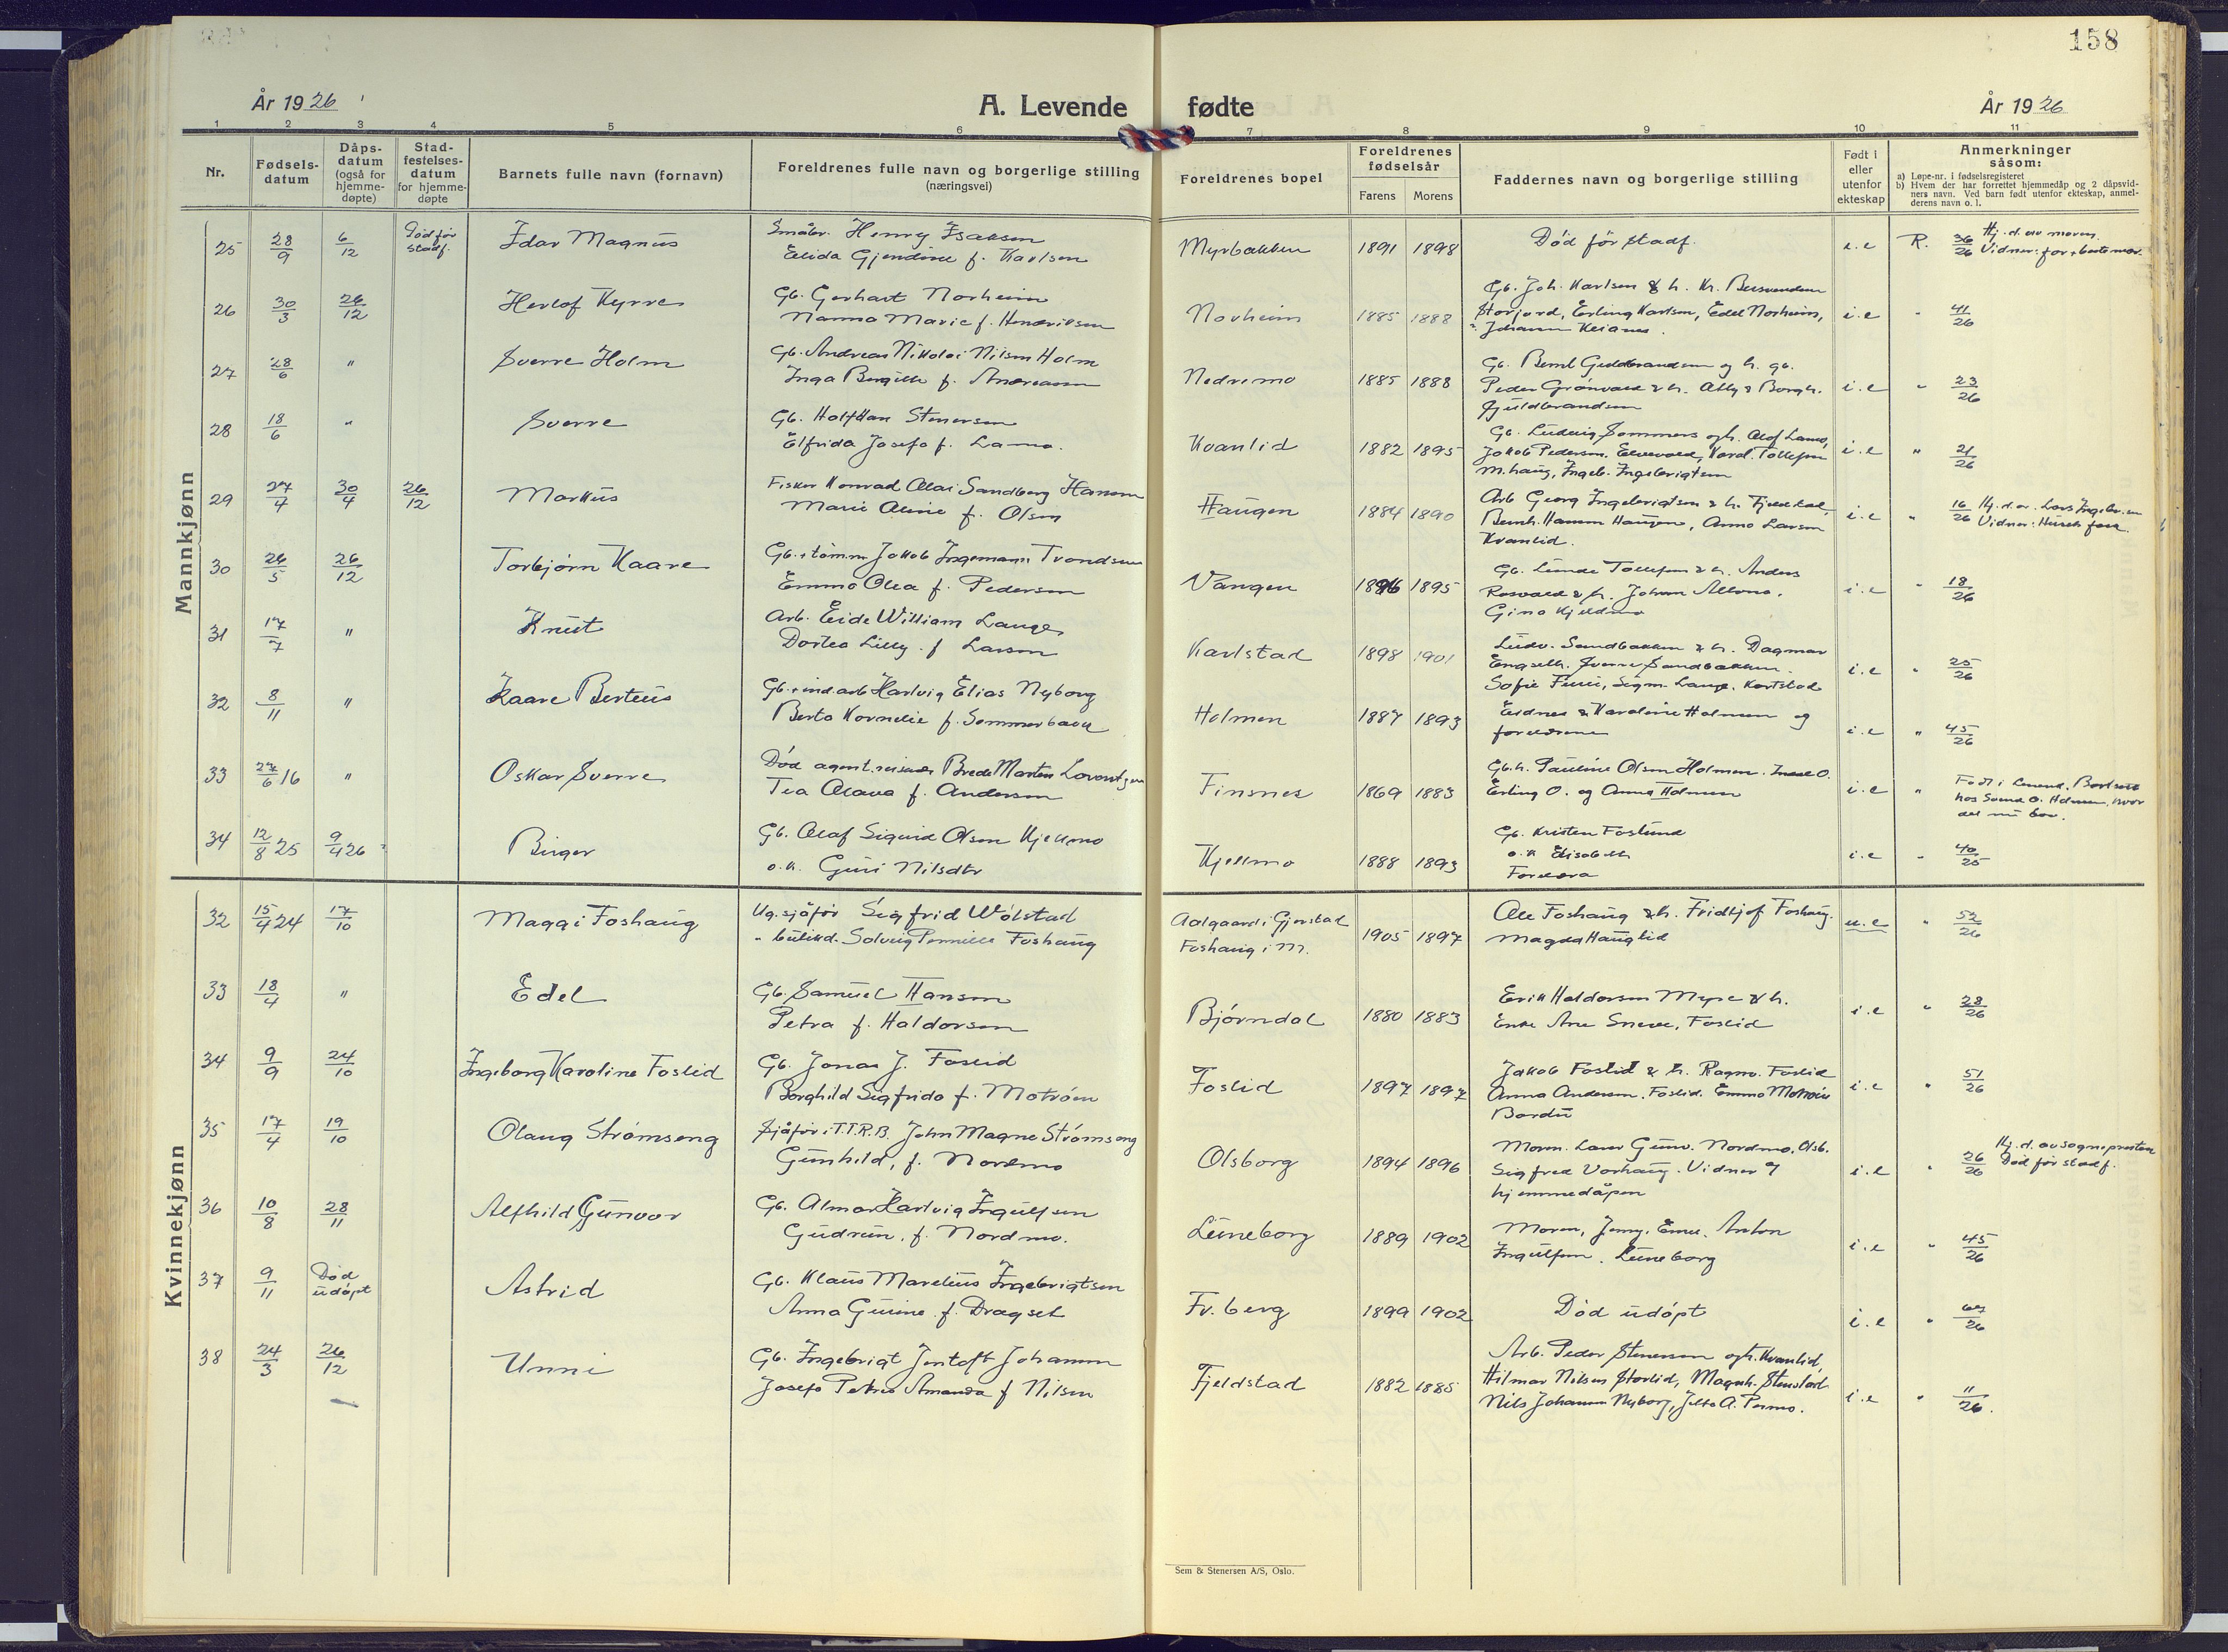 158
År 1926
A. Levende fødte
År 1926
1 2 3 4 5 6 7 8 9 10 11
Nr.
Fødsels-
datum
Dåps-
datum
(også for
hjemme-
døpte)
Stad-
festelses-
datum
for hjemme-
døpte
Barnets fulle navn (fornavn)
Foreldrenes fulle navn og borgerlige stilling
(næringsvei)
Foreldrenes bopel
Foreldrenes
fødselsår
Farens Morens
Faddernes navn og borgerlige stilling
Født i
eller
utenfor
ekteskap
Anmerkninger
såsom:
a) Løpe-nr. i fødselsregisteret
b) Hvem der har forrettet hjemmedåp og 2 dåpsvid-
ners navn. Ved barn født utenfor ekteskap, anmel-
derens navn o. l.
Mannkjønn
25 28/9 6/12 Død før stadf. Idar Magnus
Småbr. Henry Isaksen
Elida Gjendine f. Karlsen
Myrbakken 1891 1898 Død før stadf. i.e R. 36/26
Hj. d. av moren.
Vidner: far + bestemor.
26 30/3 26/12 Herlof Kyrre
Gb. Gerhart Norheim
Nanna Marie f. Henriksen
Norheim 1885 1888
Gb. Joh. Karlsen & h. Kr.
Storjord, Erling Karlsen, Edel Norheim,
Johann
i.e " 41/26
27 28/6 " Sverre Holm
Gb. Andreas Nikolai Nilsen Holm
Inga Bergitte f. Andreassen
Nedremo 1885 1888
Gb. Bernt Guldbrandsen og h. gb.
Peder Grönvold & h. & Borgh.
Guldbrandsen
i.e " 23/26
28 18/6 " Sverre
Gb. Halfdan Stenersen
Elfrida Josefa f. Lamo.
Kvanlid 1882 1895
Gb. Ludvig Sommers og h. Olaf Lamo,
Jakob Pedersen. Elvevold, Torol. Tollefsen
M.haug, Ingeb. Ingebrigtsen
i.e " 21/26
29 27/4 30/4 26/12 Markus
Fisker Konrad Olai Sandberg Hansen
Marie Aline f. Olsen
Haugen 1884 1890
Arb. Georg Ingebrigtsen & h. Fjeldstad,
Bernh. Hansen Haugen, Anna Larsen
Kvanlid.
i.e " 16/26
Hj. d. av Lars Ingebr.sen
Vidner:
30 26/5 26/12 Torbjørn Kaare
Gb. + tømm. Jakob Ingemann Trondsen
Emma Olea f. Pedersen
Vangen 1896 1895
Gb. Tollefsen & h. Anders
Rosvold & h. Johan
Gina Kjeldmo
i.e " 18/26
31 17/7 " Knut
Arb. Eide William Lange
Dortea Lilly f. Larsen
Karlstad 1898 1901
Ludv. Sandbakken & h. Dagmar
Engseth. Sverre Sandbakken.
Sofie, Sigm. Lange, Karlstad
i.e " 25/26
32 8/11 " Kaare Berteus
Gb. + ind.arb Hartvig Elias Nyborg
Berta Kornelie f. Sommerbakk
Holmen 1887 1893
& Karoline Holmen og
foreldrene
i.e " 45/26
33 27/6 16 " Oskar Sverre
Død agent, reisende Brede Morten Lorentzen
Tea Olava f. Andersen
Finsnes 1869 1883
Gb.h. Pauline Olsen Holmen.
Erling O. og Anna Holmen
i.e "
Født i
hos Svend O. Holmen, hvor
det nu bor.
34 12/8 25 9/4 26 Birger
Gb. Olaf Sigurd Olsen Kjellmo
o.h. Guri Nilsdtr
Kjellmo 1888 1893
Gb. Kristen Foslund
o.h Elisabeth
Foreldra
i.e " 40/25
Kvinnekjønn
32 15/4 24 17/10 Maggi Foshaug
Ug. sjåfør Sigfrid Wolstad
" Solveig Pernille Foshaug
Aalgaard i Gjerstad
Foshaug i M.
1905 1897
Ole Foshaug & h. Fridtjof Foshaug.
Magda Hauglid
u.e " 52/26
33 18/4 " Edel
Gb. Samuel Hansen
Petra f. Haldorsen
Bjørndal 1880 1883
Erik Haldorsen Myre & h.
Enke Ane, Foslid
i.e " 28/26
34 9/9 24/10 Ingeborg Karoline Foslid
Gb. Jonas J. Foslid
Borghild Sigfrida f. Moström
Foslid 1897 1897
Jakob Foslid & h. Ragnv. Foslid
Anna Andersen, Foslid. Emma
Bardu
i.e " 51/26
35 17/4 19/10 Olaug Strømseng
Sjåfør i T.T.R.B. John Magne Strømseng
Gunhild, f. Nordmo
Olsborg 1894 1896
Morm. Laur Gunv. Nordmo, Olsb.
Sigfred Vorhaug. Vidner v
hjemmedåpen
i.e " 26/26
Hj. d. av sognepresten
Død før stadf.
36 10/8 28/11 Alfhild Gunvor
Gb. Almar Hartvig Ingulfsen
Gudrun, f. Nordmo.
Luneborg 1889 1902
Moren, Jenny, Emil, Anton
Ingulfsen. Luneborg
i.e " 45/26
37 9/11 Død udøpt Astrid
Gb. Klaus Marelius Ingebrigtsen
Anna Gurine f. Dragset
Fr.berg 1899 1902 Død udöpt i.e " 67/26
38 24/3 26/12 Unni
Gb. Ingebrigt Jentoft Johansen
Josefa Petra Amanda f. Nilsen
Fjeldstad 1882 1885
Arb. Peder Stenersen og h. Kvanlid,
Hilmar Nilsen Storlid, Magnh. Stenstad
Nils Johansen Nyborg, A.
i.e " 11/26.
Sem & Stenersen A/S, Oslo.